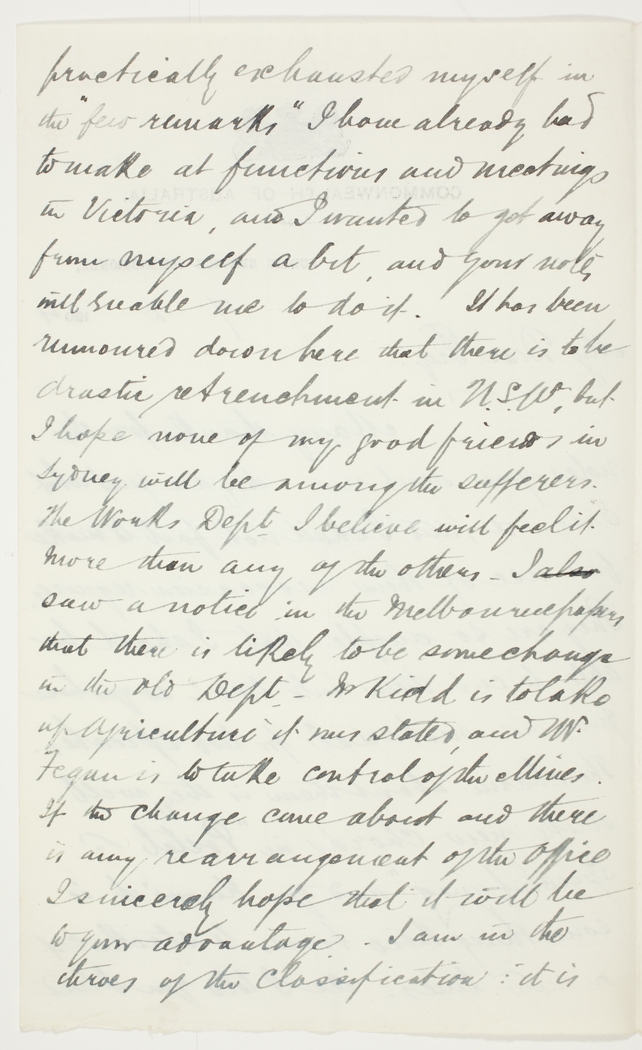 practically exhausted myself in
the "few remarks" I have already had
to make at functions and meetings
in Victoria, and I wanted to get away
from myself a bit, and your notes
will enable me to do it. It has been
rumoured down here that there is to be
drastic retrenchment in N.S.W., but
I hope none of my good friends in
Sydney will be among the sufferers.
The Works Dept I believe will feel it
more than any of the others - I also
saw a notice in the Melbourne papers
that there is likely to be some change
in the old Dept - Mr Kidd is to take
up Agriculture it was stated, and Mr
Fegan is to take control of the Mines.
If the change came about and there
is any rearrangement of the Office
I sincerely hope that it will be
to your advantage. I am in the
throes of the Classification: it is